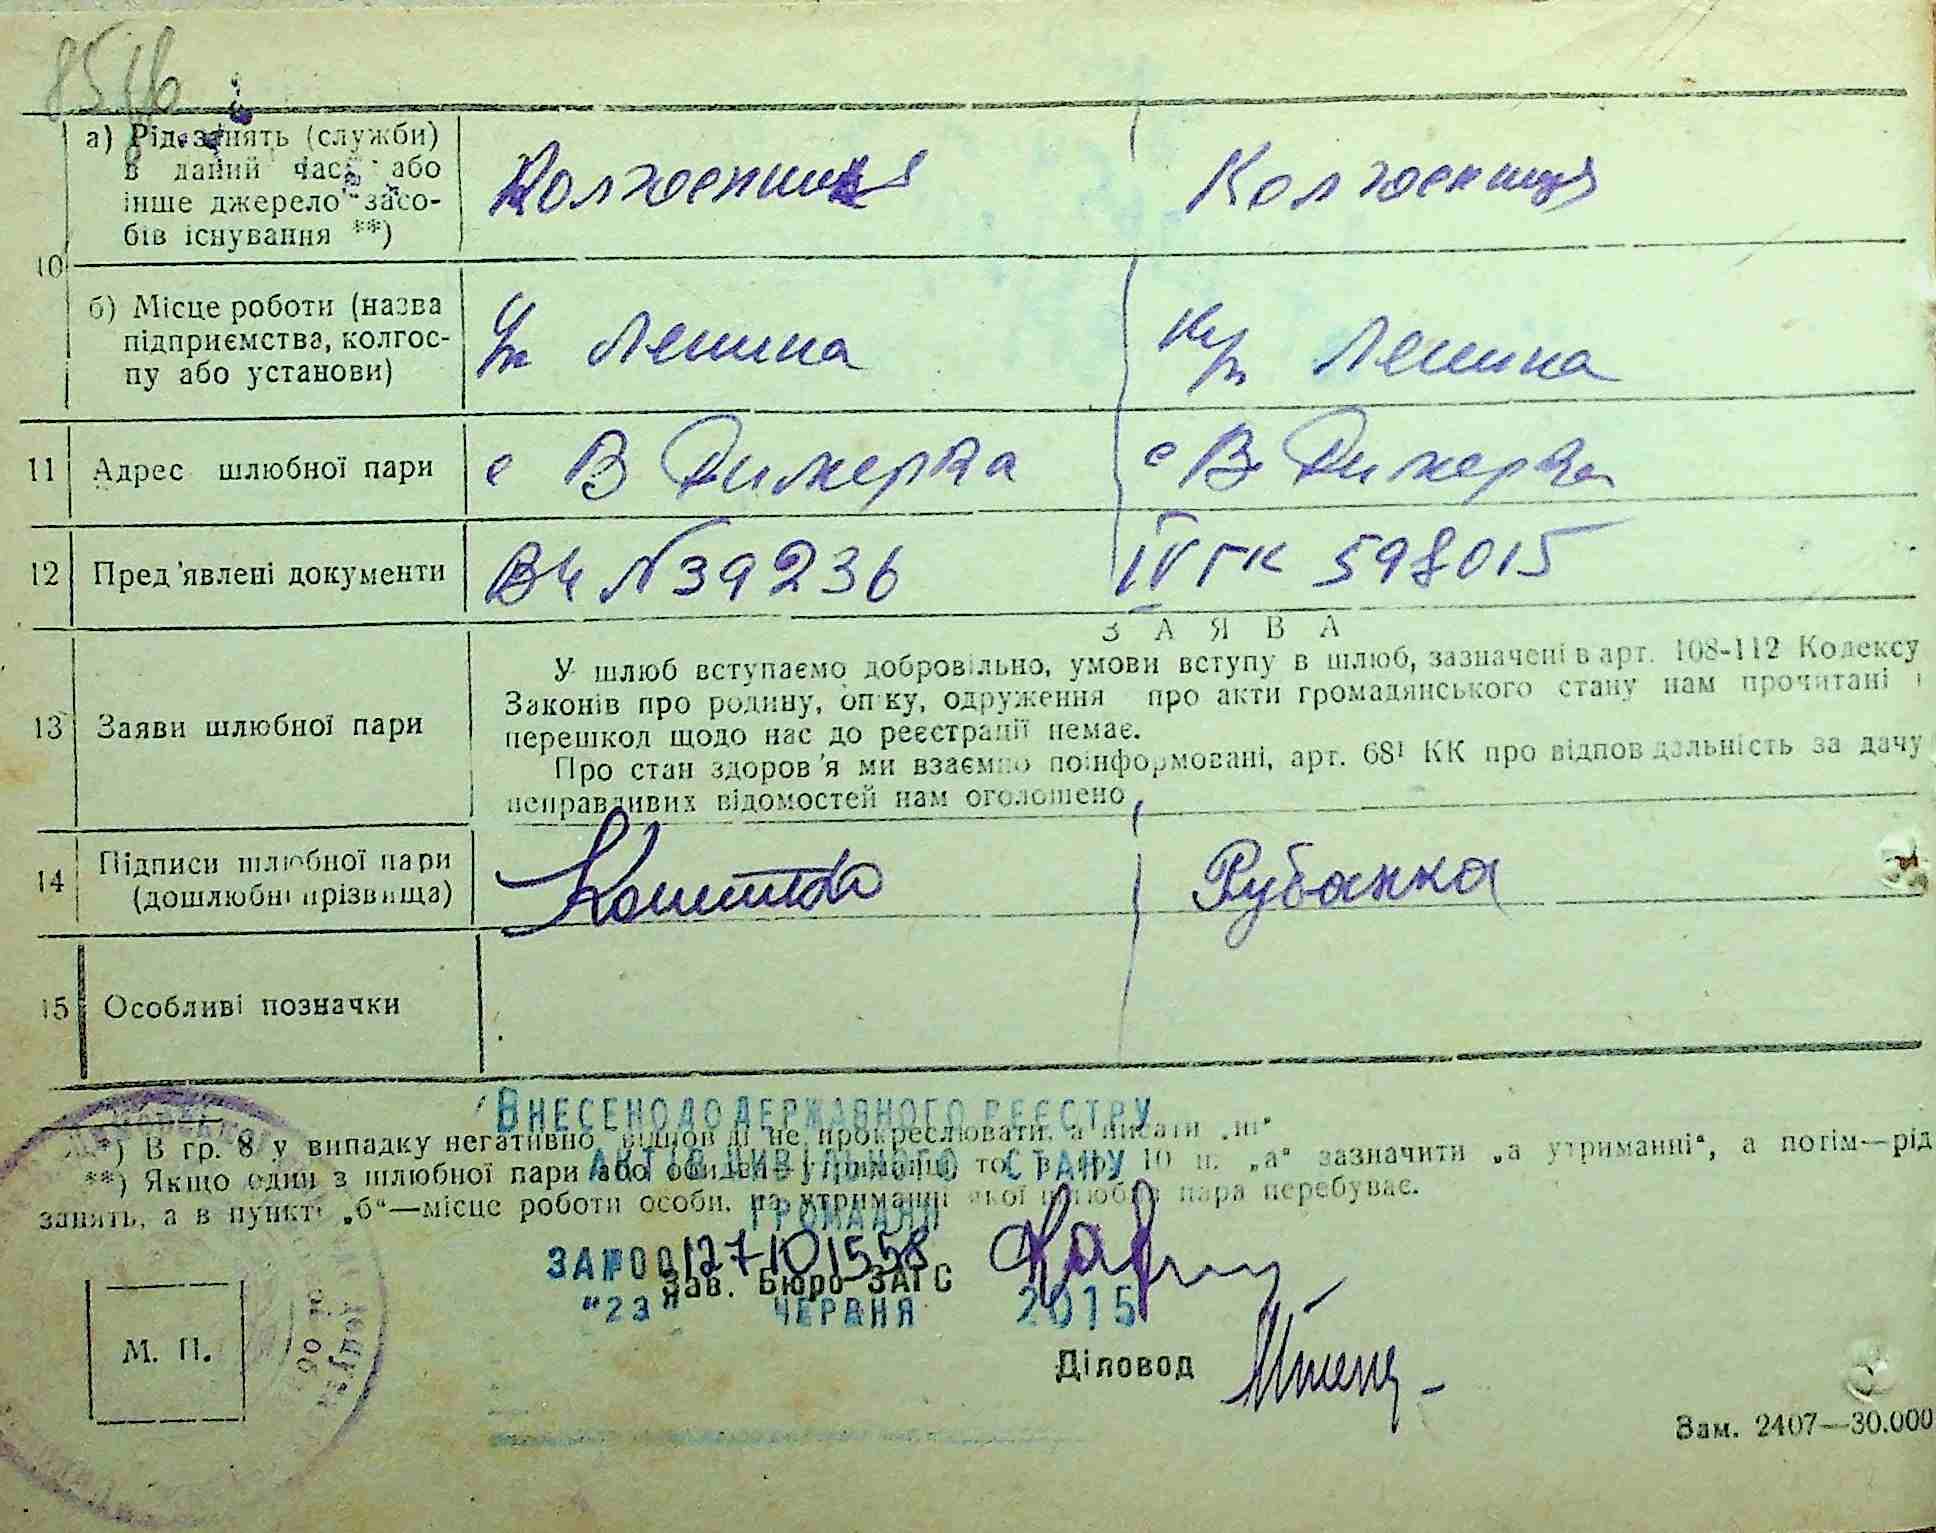 а) Рід занять (служби)
в даний час або
інше джерело засо-
бів існування **)
Колгоспник
Колгоспниця
10
б) Місце роботи (назва
підприємства, колгос-
пу або установи)
Леніна
Леніна
11 Адрес шлюбної пари
с В Димерка
с В Димерка
12 Пред'явлені документи
ВЧ №39236
IV ГК 598015
З А Я В А
13 Заяви шлюбної пари
У шлюб вступаємо добровільно, умови вступу в шлюб, зазначені в арт. 108-112 Кодексу
Законів про родину, опіку, одруження про акти громадянського стану нам прочитані і
перешкод щодо нас до реєстрації немає.
Про стан здоров'я ми взаємно поінформовані, арт. 68¹ КК про відповідальність за дачу
неправдивих відомостей нам оголошено
14 Підписи шлюбної пари
(дошлюбні прізвища)
Рубанка
15 Особливі позначки
ВНЕСЕНО ДО ДЕРЖАВНОГО РЕЄСТРУ
*) В гр. 8 у випадку негативно відповіді не прокреслювати, а писати „ні"
АКТІВ ЦИВІЛЬНОГО СТАНУ
**) Якщо один з шлюбної пари або обидва утриманці то в гр. 10 п. „а" зазначити „а утриманні", а потім—рід
занять, а в пункті „б"—місце роботи особи, на утриманні якої шлюбна пара перебуває.
ГРОМАДЯН
ЗА №00127101558
Зав. Бюро ЗАГС
"23" ЧЕРВНЯ 2015
М. П.
Діловод
Зам. 2407—30.000